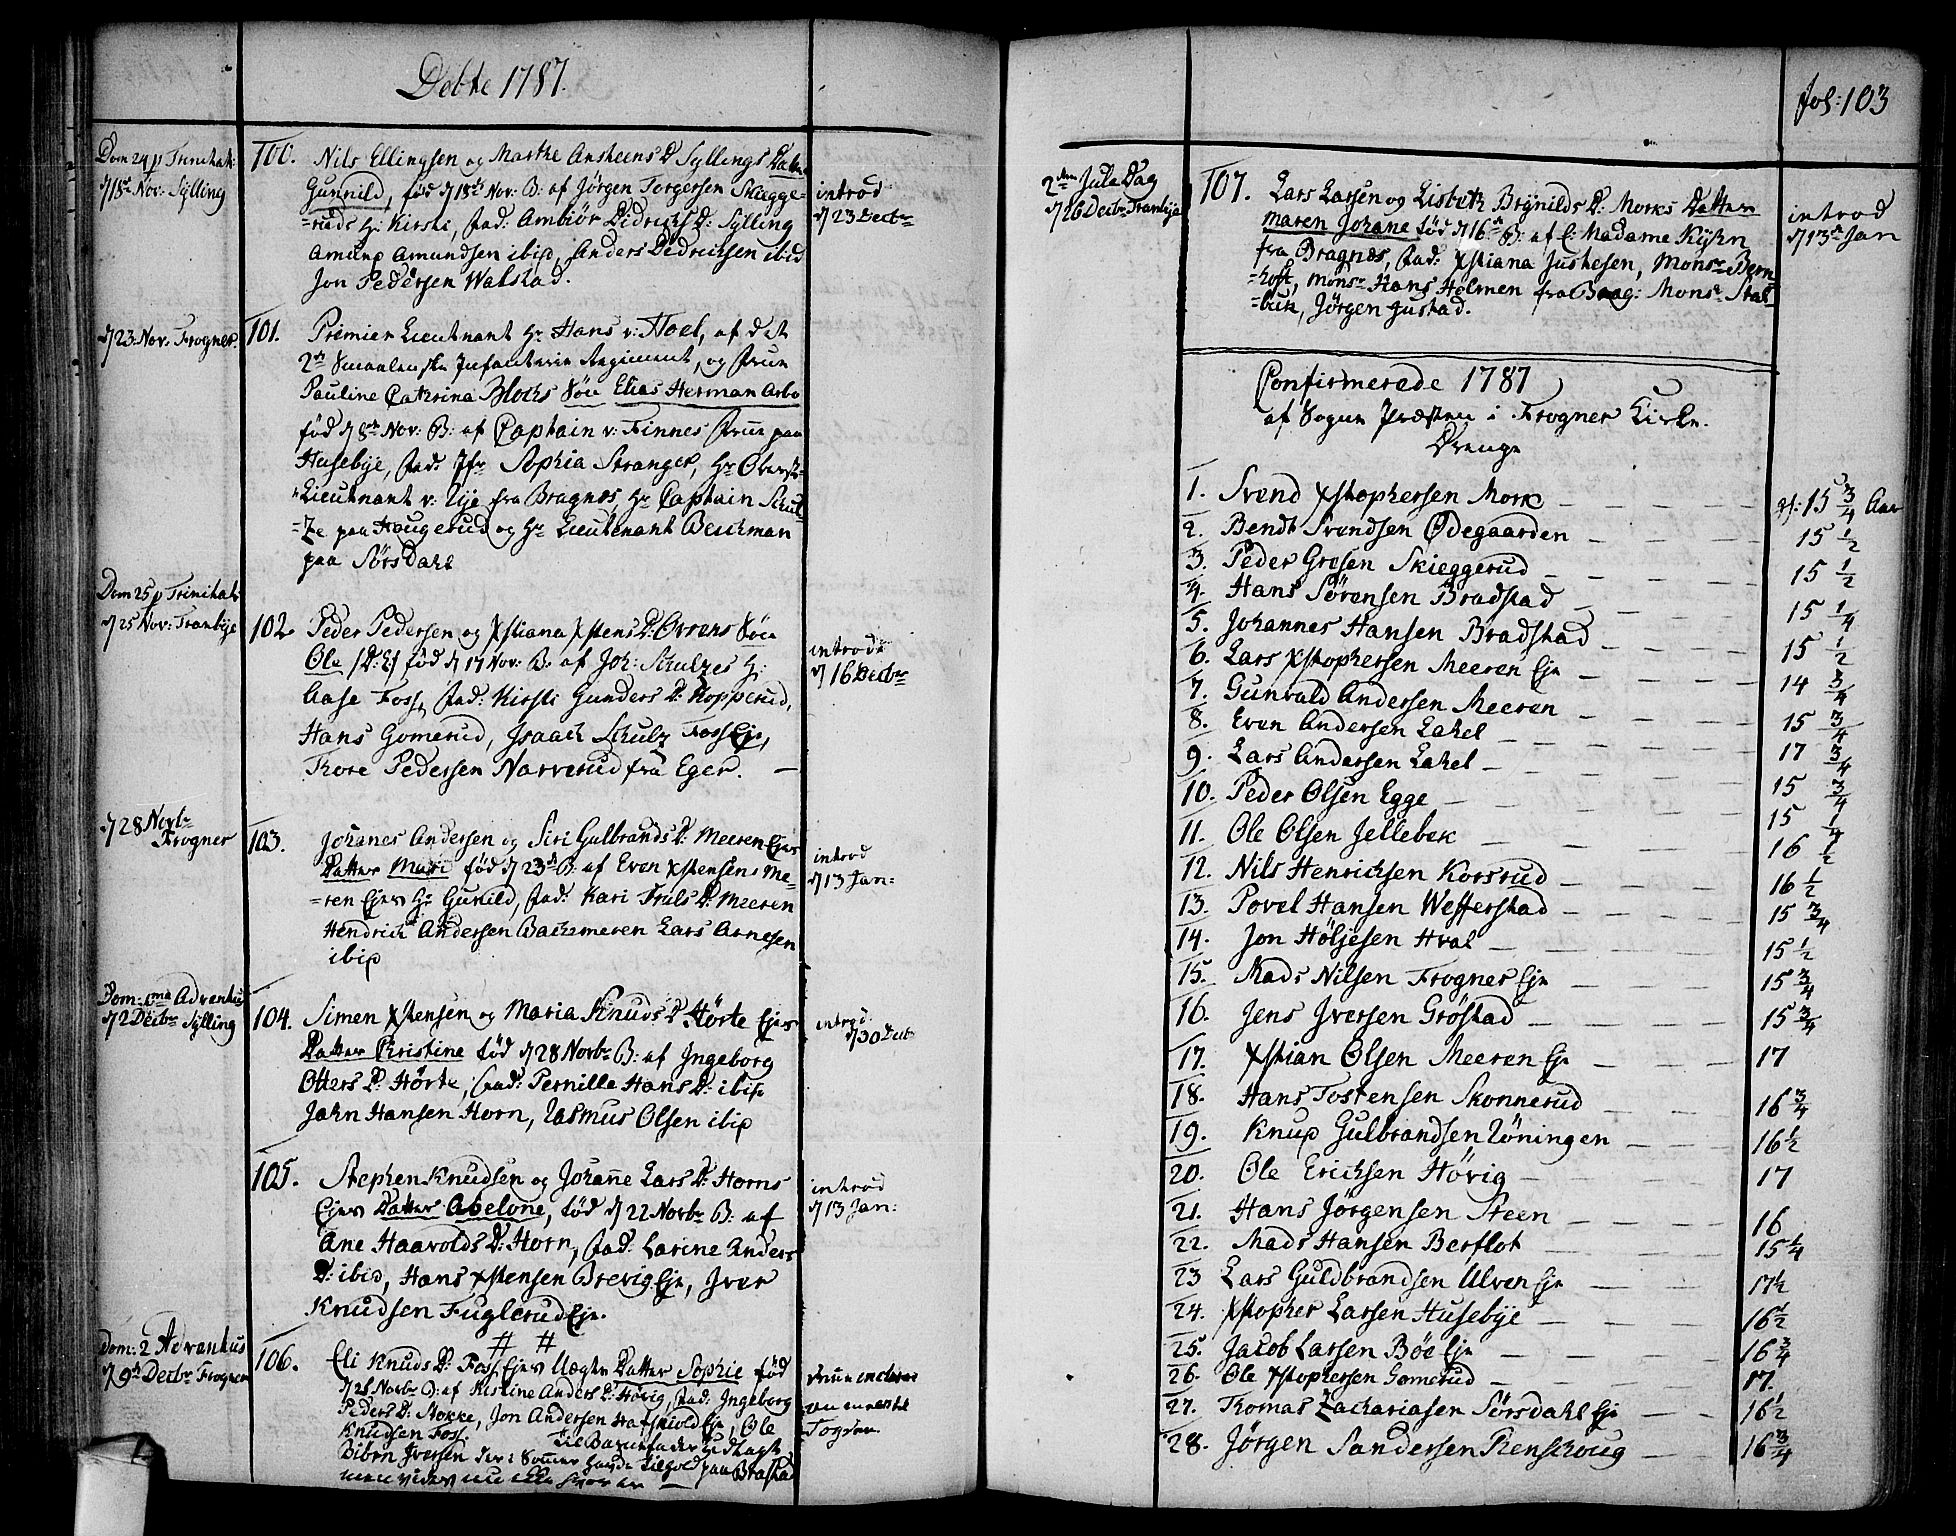 Döbte 1787.
Dom 24 p Trinitat:
d 18de Nov: Sylling
100. Nils Ellingsen og Marthe Ansteens D Syllings Datter
Gunnild, föd d 18de Nov: B: af Jörgen Torgersen Skiegge=
=ruds H: Kirsti, fad: Ambiör Didrichs D: Sylling
Amund Amundsen ibid, Anders Didrichsen ibid
Jon Pedersen Walstad.
introd
d 23 Decbr
d 23 Nov: Frogner.
101. Premier Lieutnant Hr Hans v: Noel, af det
2det Smaalenske Infanterie Regiment, og Frue
Pauline Cathrina Blochs Sön Elias Herman Arbo
föd d 8de Nov: B: af Captain v: Finnes Frue paa
Husebye, fad: Jfr Sophia Stranger, Hr Oberst=
=Lieutnant v: Uje fra Bragnes, Hr Captain Schul=
=ze paa Haugerud og Hr Lieutenant Beichman
paa Sörsdahl
Dom 25 p Trinitat:
d 25 Nov: Tranbye
102 Peder Pedersen og Xstiana Xstens D: Ovrens Sön
Ole /D: E/ föd d 17 Nov: B: af Joh: Schulzes H:
Aase Foss, fad: Kirsti Gunders D: Kopperud,
Hans Gomerud, Isaach Schulz Foss Eje,
Thore Pedersen Narverud fra Eger.
introd:
d 16 Decbr
d 28 Novbr
Frogner
103. Johanes Andersen og Siri Gulbrands D: Meeren Ejes
Datter Mari föd d 23de B: af Even Xstensens Me=
=ren Ejes H: Gunild, fad: Kari Truls D: Meeren
Hendrich Andersen Bachemeren Lars Arnesen
ibid
introd
d 13 Jan:
Dom: 1ma Adventus
d 2 Decbr Sylling
104. Simen Xstensen og Maria Knuds D Hörte Ejes
Datter Christine föd d 28 Novbr B: af Ingeborg
Otters D: Hörte, fad: Pernille Hans D: ibid
John Hansen Horn, Rasmus Olsen ibid
introd.
d 30 Decb
105. Stephen Knudsen og Johane Lars D: Horns
Ejes Datter Abelone, föd d 22 Novbr B: af
Ane Haavolds D: Horn, fad: Larine Anders
D: ibid, Hans Xstensen Brevig Eje, Iver
Knudsen Fuglerud Eje.
introd
d 13 Jan:
Dom: 2 Adventus
d 9de Decbr Frogner
# #
106. Eli Knuds D: Foss Ejes Uægte Datter Sophie föd
d 28 Novbr B: af Kistine Anders D: Hövig, fad: Ingeborg
Peders D: Stokke, Jon Andersen Hafskiold Eje, Ole
Knudsen Foss. Til Barnefader Udlagt
Biörn Iversen der i Sommer havde tilhold paa Brastad
Fol: 103
2den Jule Dag
d 26 Decbr Tranbye
107. Lars Larsen og Lisbeth Brynilds D: Morks Datter
maren Johane föd d 16de B: af C: Madame Kyhn
fra Bragnes, fad: Xstiana Justesen, Monsr Bern=
=hoft, Monsr Hans Holmen fra Brag: Monsr Stal=
=buk, Jörgen Justad.
introd
d 13de Jan
Confirmerede 1787
af Sogne Præsten i Frogner Kirke.
Drenge
1. Svend Xstophersen Mork 15 3/4 Aar
2. Bendt Svendsen Ødegaarden 15 1/2
3. Peder Gresen Skieggerud 15 1/2
4. Hans Sörensen Bradstad 15 1/4
5. Johannes Hansen Bradstad 15 1/2
6. Lars Xstophersen Meeren Eje 14 3/4
7. Gunvald Andersen Meeren 15 3/4
8. Even Andersen Lahel 17 3/4
9. Lars Andersen Lahel 15 3/4
10. Peder Olsen Egge 15 1/4
11. Ole Olsen Jellebek 16 1/2
12. Nils Henrichsen Korsrud 16 1/2
13. Povel Hansen Wefferstad 15 3/4
14. Jon Höljesen Hval 15 1/2
15. Mads Nilsen Frogner Eje 15 3/4
16. Jens Iversen Gröstad 15 3/4
17. Xstian Olsen Meeren Eje 17
18. Hans Tostensen Skonnerud 16 3/4
19. Knud Gulbrandsen Löningen 16 1/2
20. Ole Erichsen Hövig 17
21. Hans Jörgensen Steen 16
22. Mads Hansen Berflot 15 1/4
23 Lars Guldbrandsen Ulven Eje 17 1/2
24. Xstopher Larsen Husebye 16 1/2
25. Jacob Larsen Böe Eje 16 3/4
26. Ole Xstophersen Gomerud 17.
27. Thomas Zachariasen Sörsdahl Eje 16 1/2
28. Jörgen Sandersen Renschoug 16 3/4